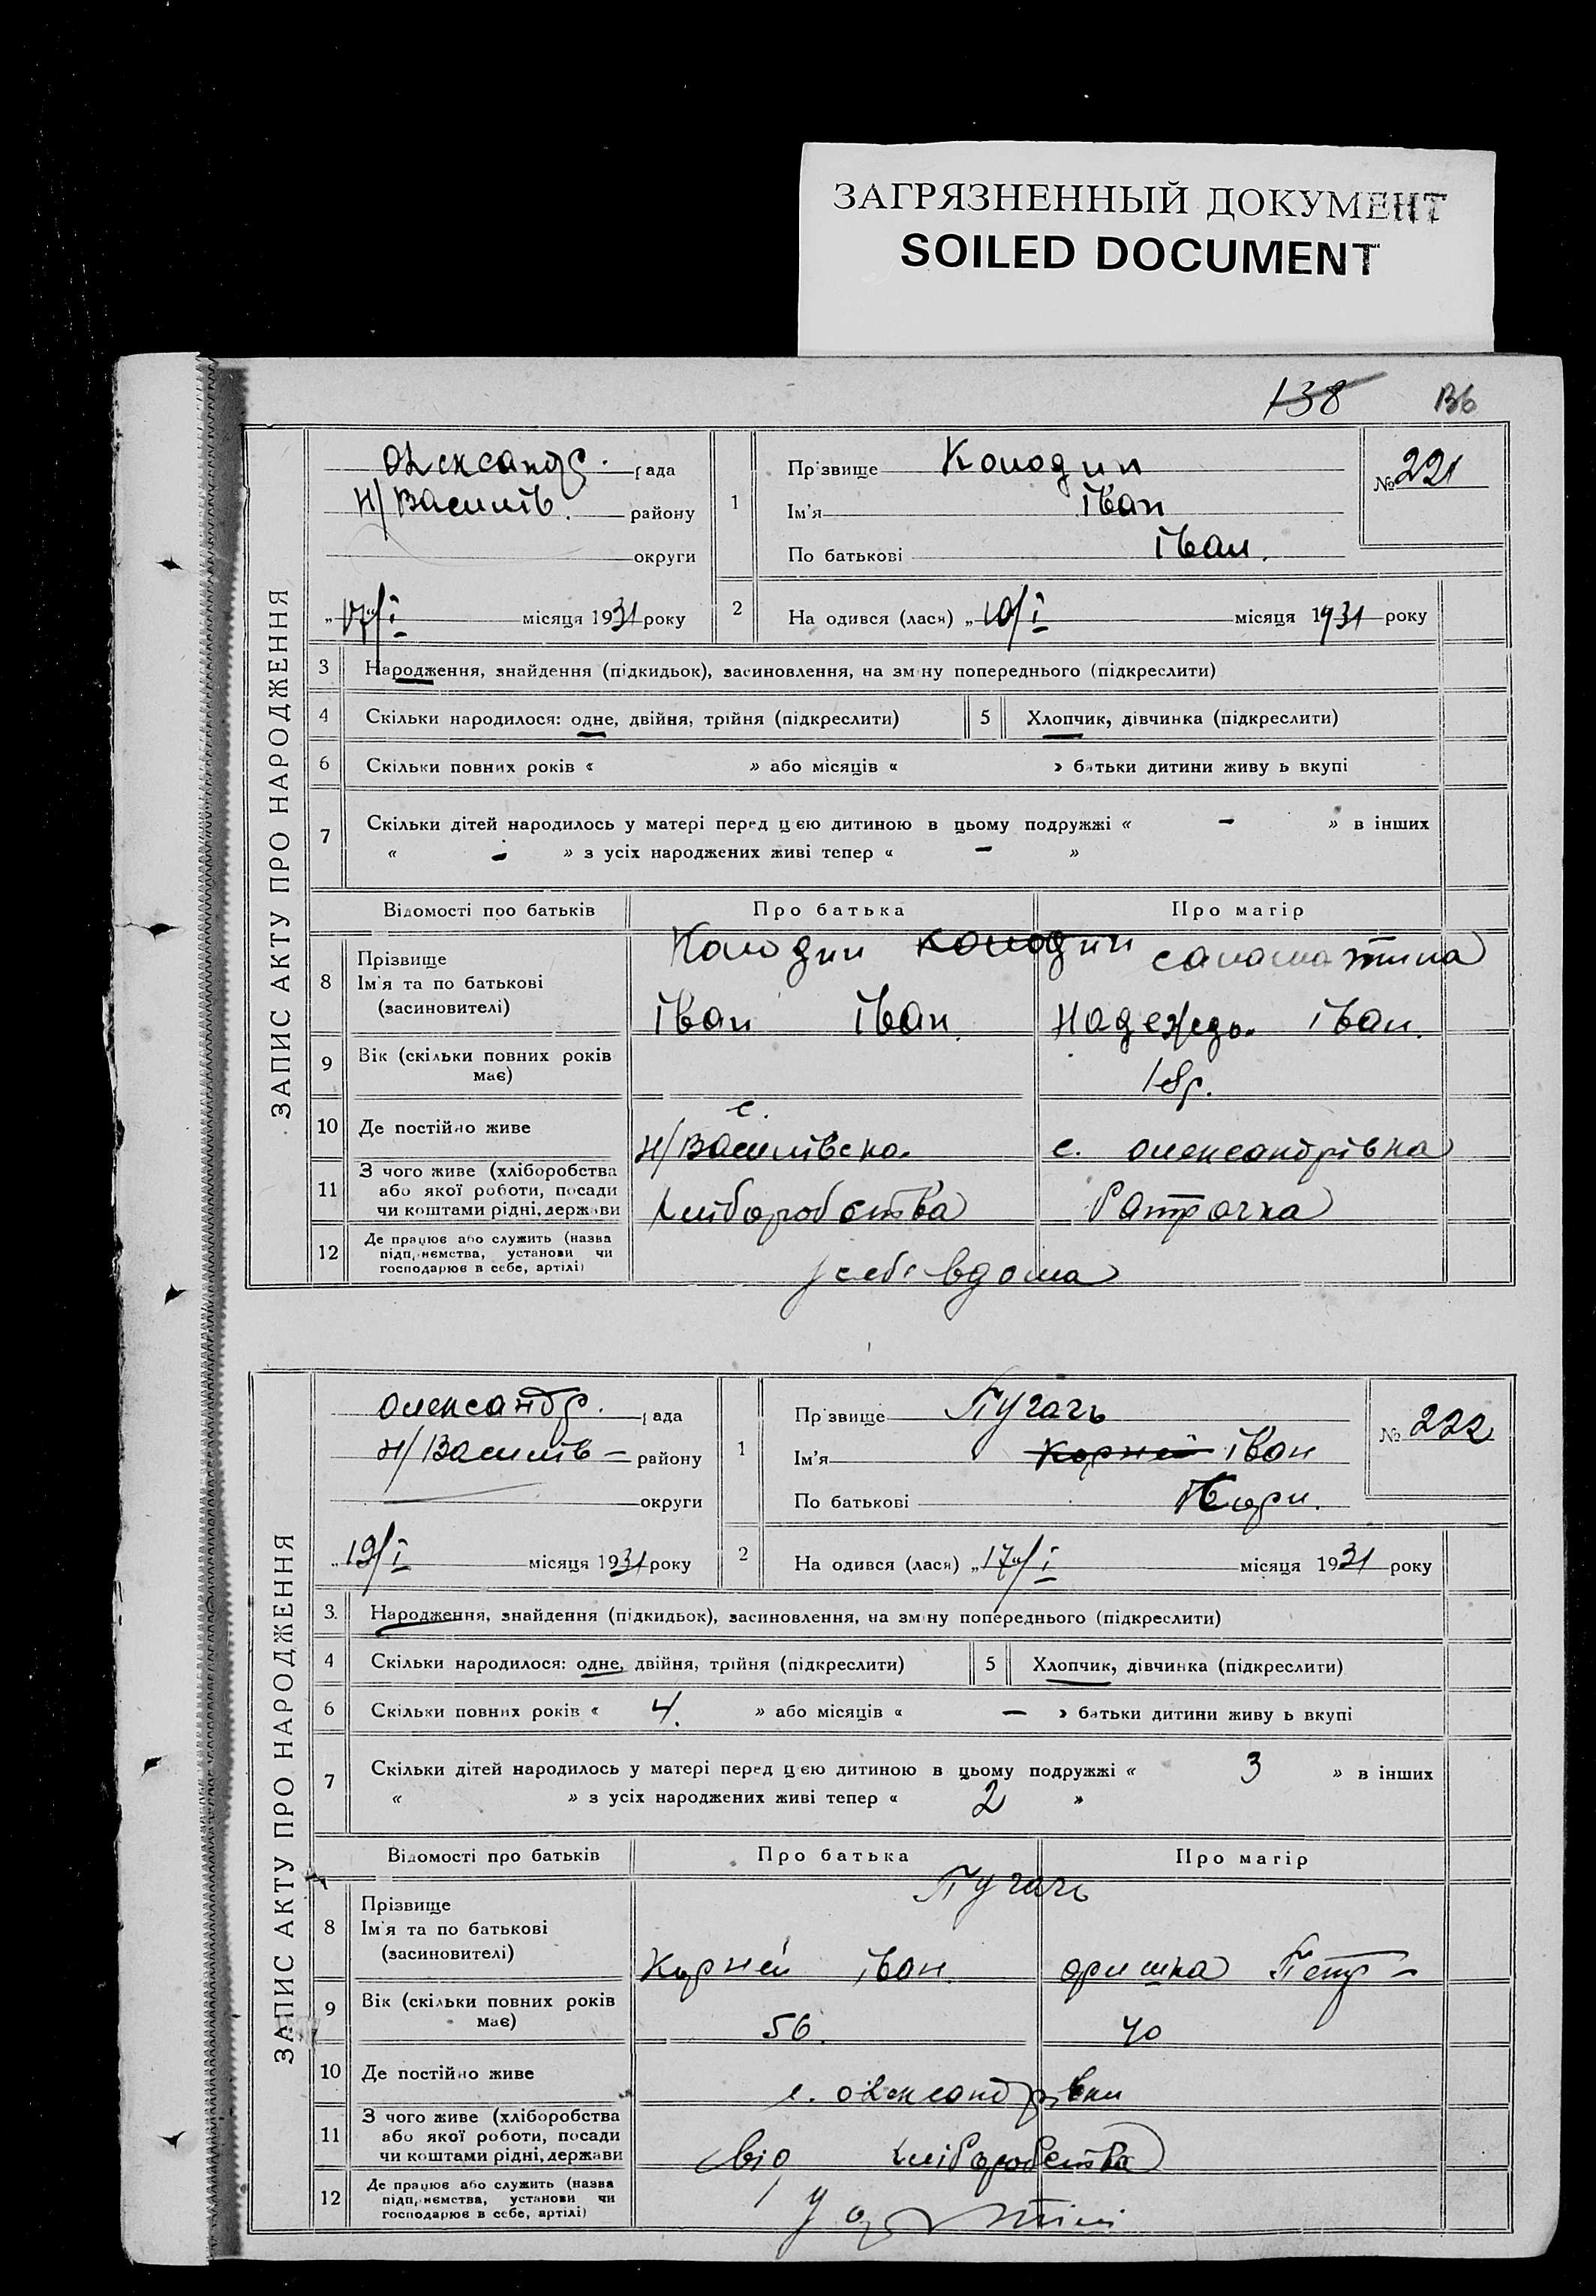 ЗАГРЯЗНЕННЫЙ ДОКУМЕНТ
SOILED DOCUMENT
138 136
ЗАПИС АКТУ ПРО НАРОДЖЕННЯ
Олександр. рада
Н/Василів. району
округи
"17/I місяця 1931 року
1 Прізвище Колодин
Ім'я Іван
По батькові Іван.
№ 221
2 На одився (лася) „10/I місяця 1931 року
3 Народження, знайдення (підкидьок), засиновлення, на зміну попереднього (підкреслити)
4 Скільки народилося: одне, двійня, трійня (підкреслити) 5 Хлопчик, дівчинка (підкреслити)
6 Скільки повних років « » або місяців « » батьки дитини живуть вкупі
7 Скільки дітей народилось у матері перед цією дитиною в цьому подружжі « - » в інших
« - » з усіх народжених живі тепер « - »
Відомості про батьків Про батька Про матір
8 Прізвище
Ім'я та по батькові
(засиновителі)
Колодин Колодин
Іван Іван.
Надежда Іван.
9 Вік (скільки повних років має) 18р.
10 Де постійно живе с. Н/Василівска с. Олександрівка
11 З чого живе (хліборобства
або якої роботи, посади
чи коштами рідні, держави
хліборобства
12 Де працює або служить (назва
підприємства, установи чи
господарює в себе, артілі)
у себе вдома
ЗАПИС АКТУ ПРО НАРОДЖЕННЯ
Олександр. рада
Н/Василів – району
округи
„19/I місяця 1931 року
1 Прізвище Пугачь
Ім'я Корней Іван
По батькові Корн.
№ 222
2 На одився (лася) „17/I місяця 1931 року
3. Народження, знайдення (підкидьок), засиновлення, на зміну попереднього (підкреслити)
4 Скільки народилося: одне, двійня, трійня (підкреслити) 5 Хлопчик, дівчинка (підкреслити)
6 Скільки повних років « 4. » або місяців « — » батьки дитини живуть вкупі
7 Скільки дітей народилось у матері перед цією дитиною в цьому подружжі « 3 » в інших
« » з усіх народжених живі тепер « 2 »
Відомості про батьків Про батька Про матір
8 Прізвище
Ім'я та по батькові
(засиновителі)
Пугачь
Корней Іван. Оришка Петр –
9 Вік (скільки повних років має) 56. 40
10 Де постійно живе с. Олександрівки
11 З чого живе (хліборобства
або якої роботи, посади
чи коштами рідні, держави
від хліборобства
12 Де працює або служить (назва
підприємства, установи чи
господарює в себе, артілі)
у артілі